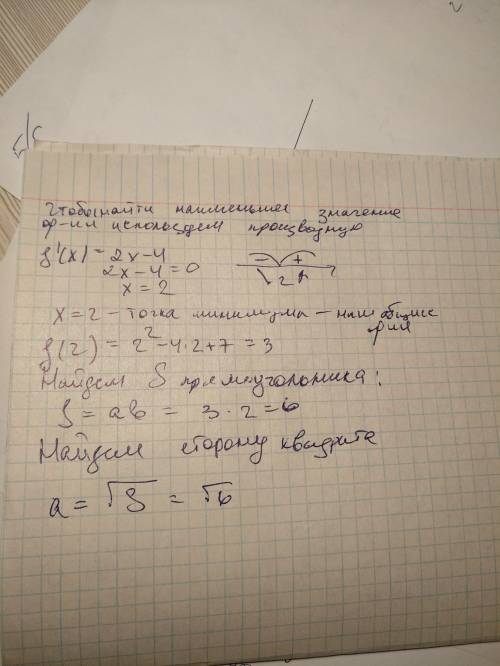 Чтобы найти наименьшее значение
ф-ции используем производную
f'(x) = 2x-4
2x-4=0
x = 2
- +
2
x = 2 - точка минимума - наш
f(2) = 2² - 4·2+7 = 3
Найдем S прямоугольника:
S = ab = 3·2=6
Найдем сторону квадрата
a = √S = √6